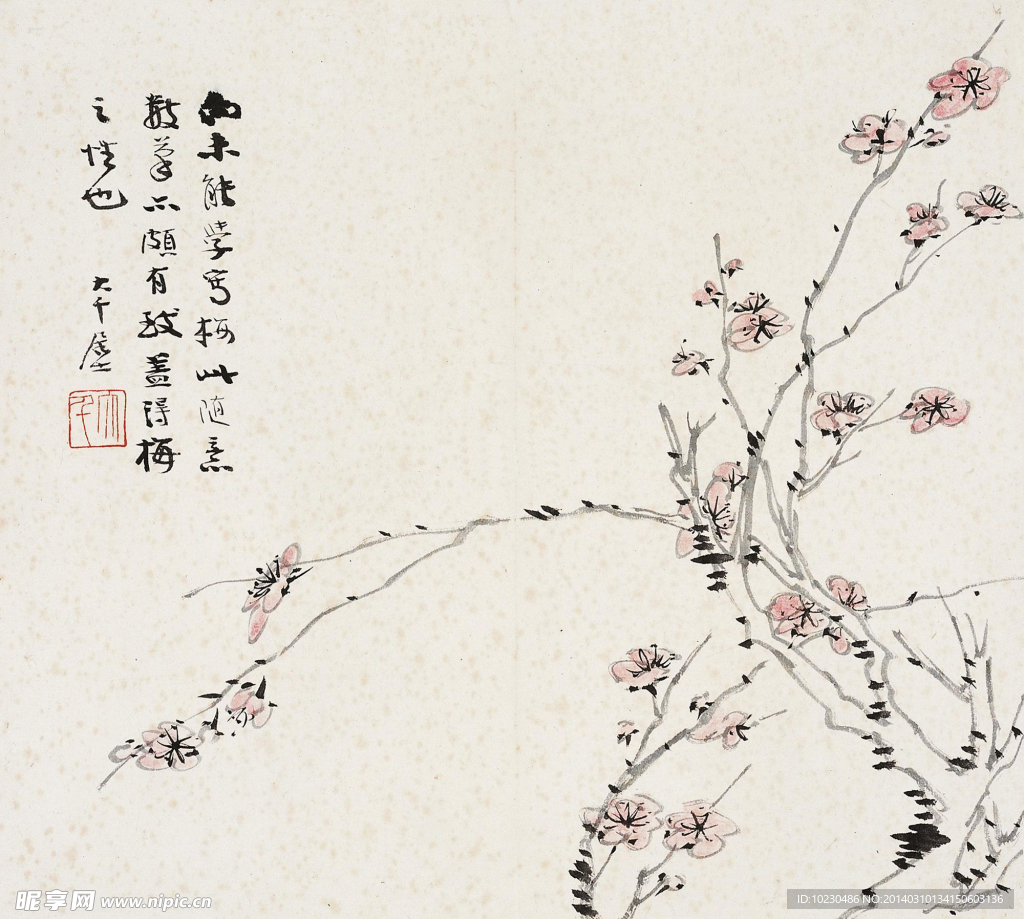 而未能学写梅此随意
数笔亦颇有致盖得梅
之性也 大千居士
大千
昵享网 www.nipic.cn
ID:10230486 NO:20140310134150603136